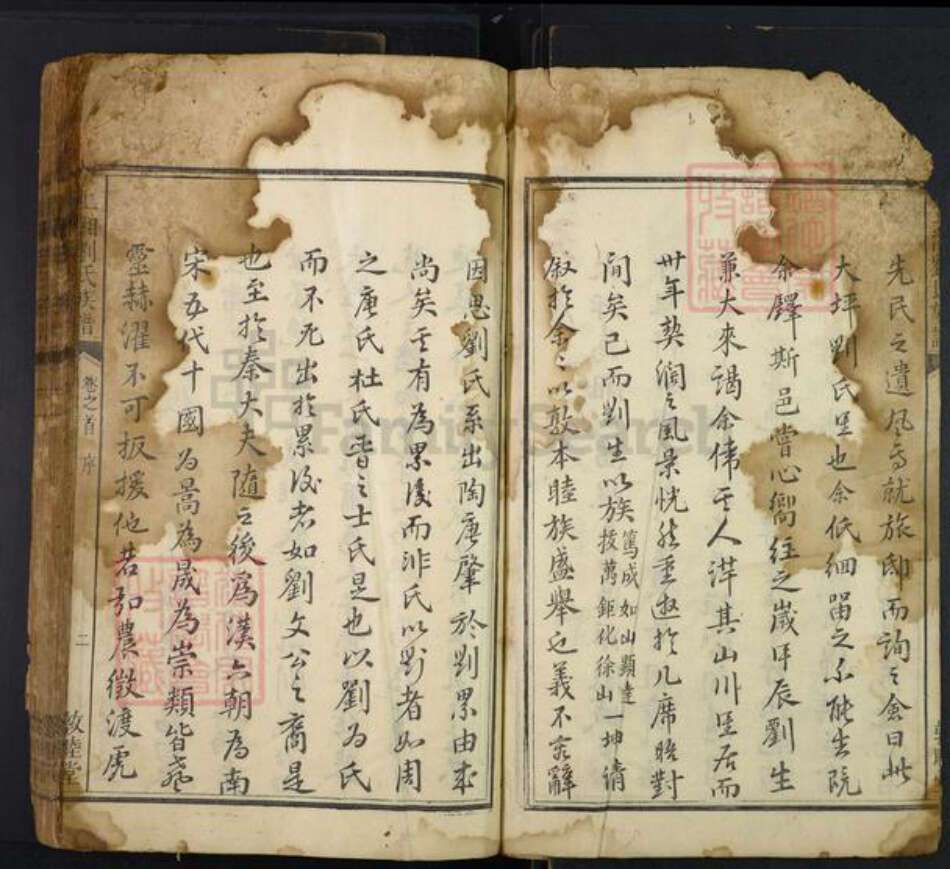 先民之遺風焉就旅邸而詢之僉曰此
大坪劉氏里也余低徊留之不能去既
余鐸斯邑嘗心嚮往之歲丙辰劉生
兼大來謁余偉其人洋其山川里居而
卅年契濶之風景恍然重遊於几席晤對
間矣已而劉生以族篤成如山顯達
拔萬鉅化徐山一坤請
敘於余余以敦本睦族盛舉也義不容辭
因思劉氏系出陶唐肇於劉累由來
尚矣其有為累後而非氏以劉者如周
之唐氏杜氏晉之士氏是也以劉為氏
而不尤出於累後者如劉文公之裔是
也至於秦大夫隨之後為漢六朝為南
宋五代十國為暠為晟為崇類皆
靈赫濯不可扳援他若弘農徵渡虎
劉氏族譜
卷之首 序
二
敦睦堂
FamilySearch